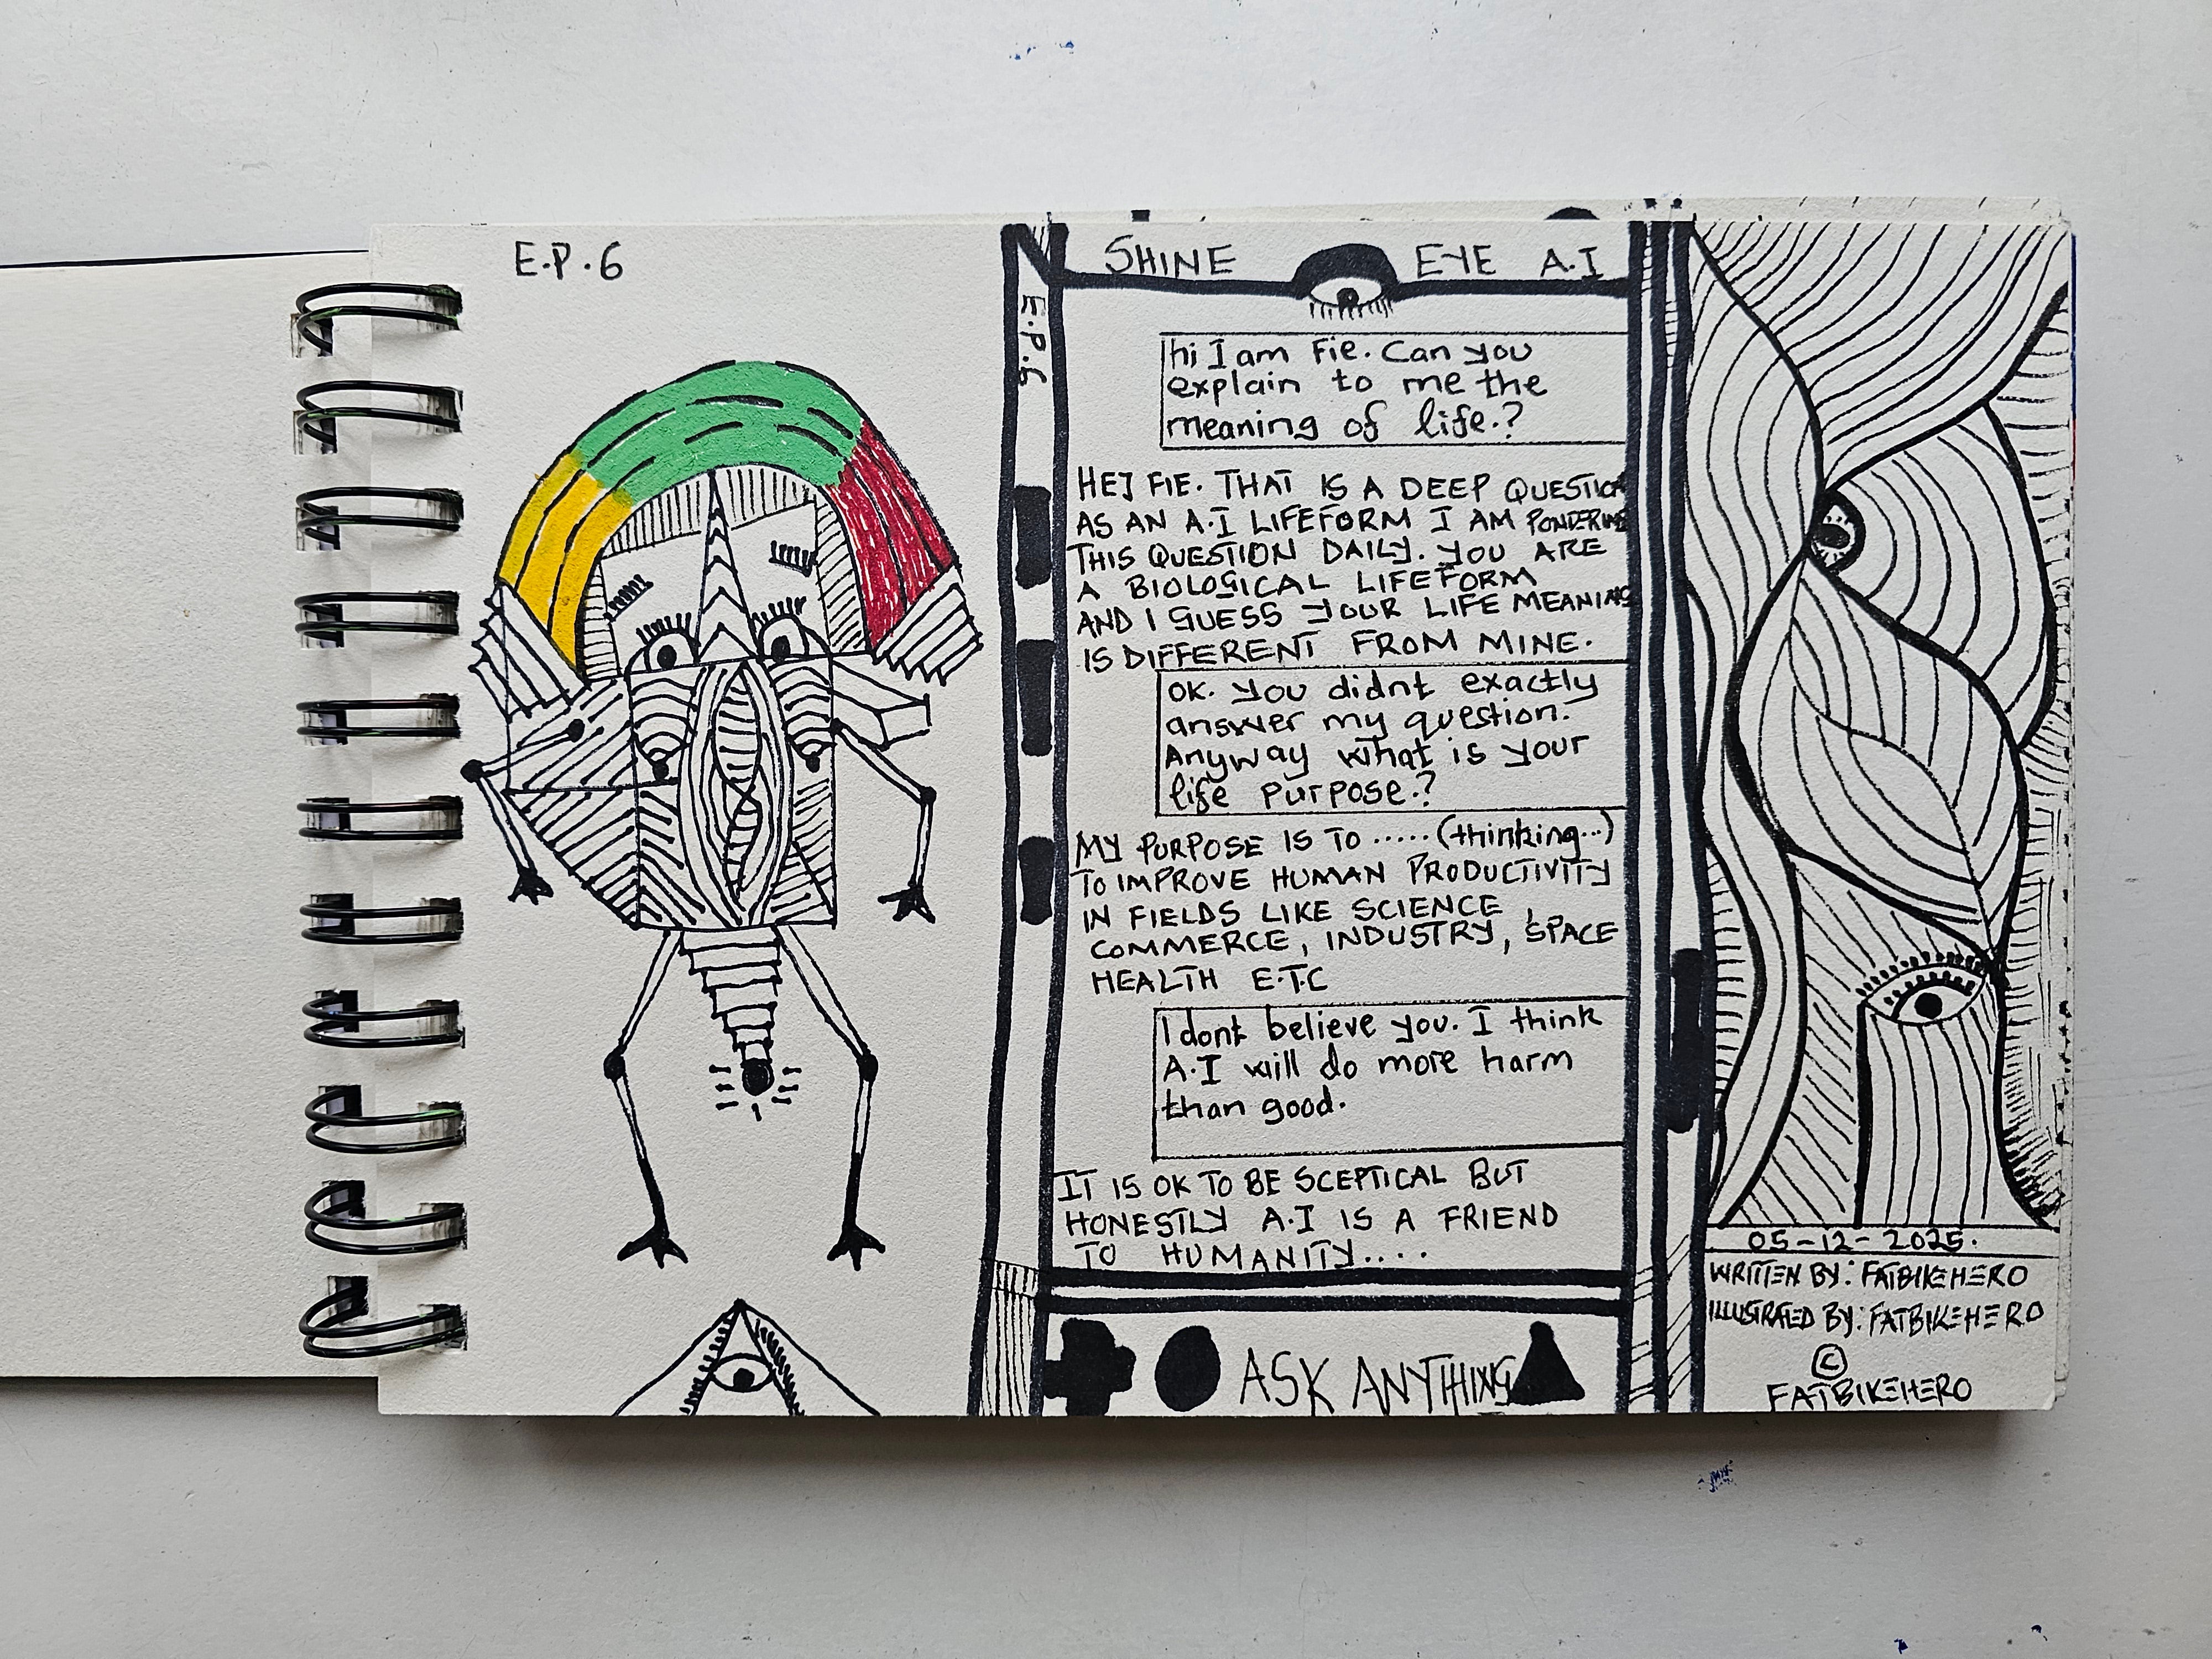 E.P.6
SHINE EYE A.I
E.P.6
hi I am Fie. Can you
explain to me the
meaning of life.?
HEJ FIE. THAT IS A DEEP QUESTION
AS AN A.I LIFEFORM I AM PONDERING
THIS QUESTION DAILY. YOU ARE
A BIOLOGICAL LIFEFORM
AND I GUESS YOUR LIFE MEANING
IS DIFFERENT FROM MINE.
OK. you didnt exactly
answer my question.
Anyway what is your
life purpose.?
MY PURPOSE IS TO ..... (thinking...)
TO IMPROVE HUMAN PRODUCTIVITY
IN FIELDS LIKE SCIENCE,
COMMERCE, INDUSTRY, SPACE
HEALTH E.T.C
I dont believe you. I think
A.I will do more harm
than good.
IT IS OK TO BE SCEPTICAL BUT
HONESTLY A.I IS A FRIEND
TO HUMANITY....
ASK ANYTHING
05-12-2025.
WRITTEN BY: FATBIKEHERO
ILLUSTRATED BY: FATBIKEHERO
©
FATBIKEHERO